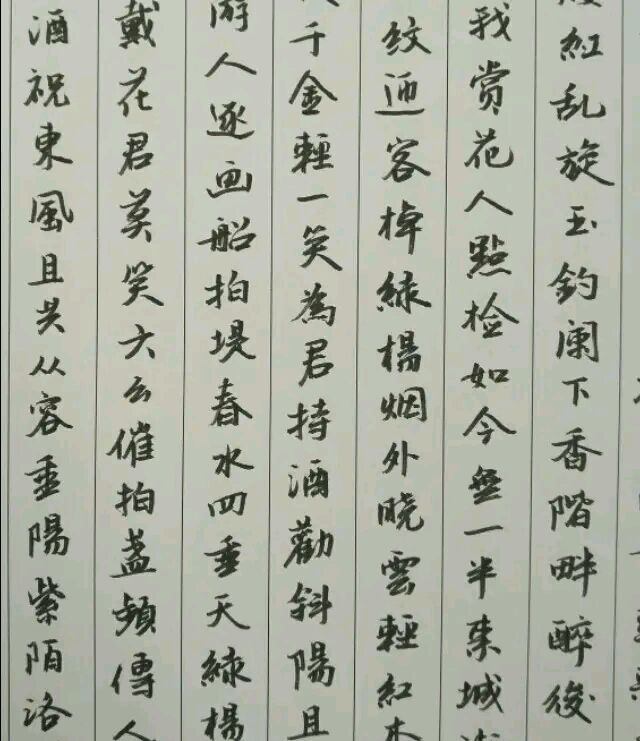 紅乱旋玉钓阑下香階畔醉後
我賞花人點检如今無一半東城
纹迎客棹緑楊烟外晓雲輕紅
千金輕一笑為君持酒勸斜陽且
游人逐画船拍堤春水四垂天緑楊
戴花君莫笑六么催拍盏頻傳人
酒祝東風且共从容垂陽紫陌洛